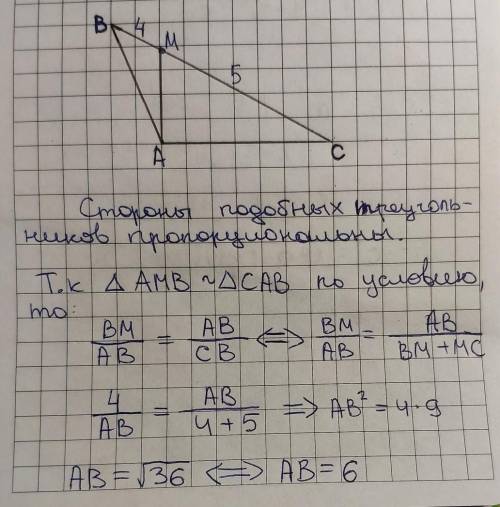 B 4 M
5
A C
Стороны подобных треуголь-
ников пропорциональны.
Т.к △AMB ~ △CAB по условию,
то:
BM/AB = AB/CB ⟺ BM/AB = AB/(BM+MC)
4/AB = AB/(4+5) ⟹ AB² = 4·9
AB = √36 ⟺ AB = 6